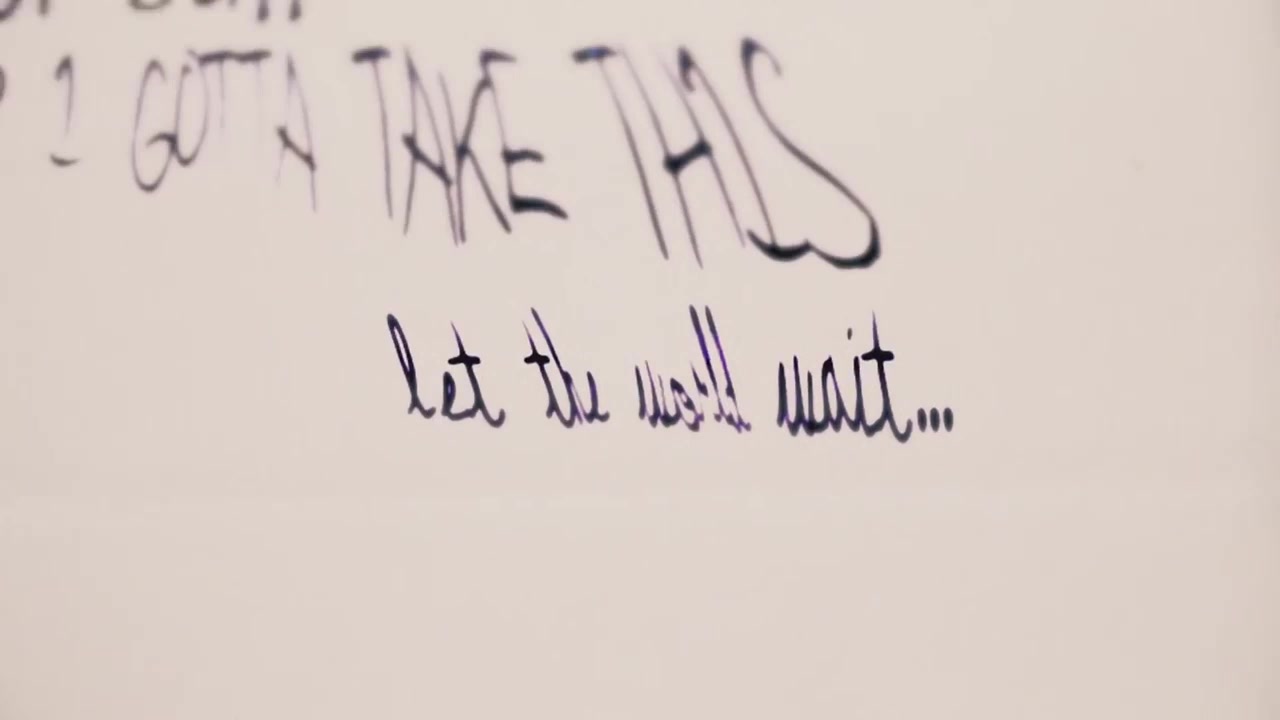 I GOTTA TAKE THIS
let the world wait...